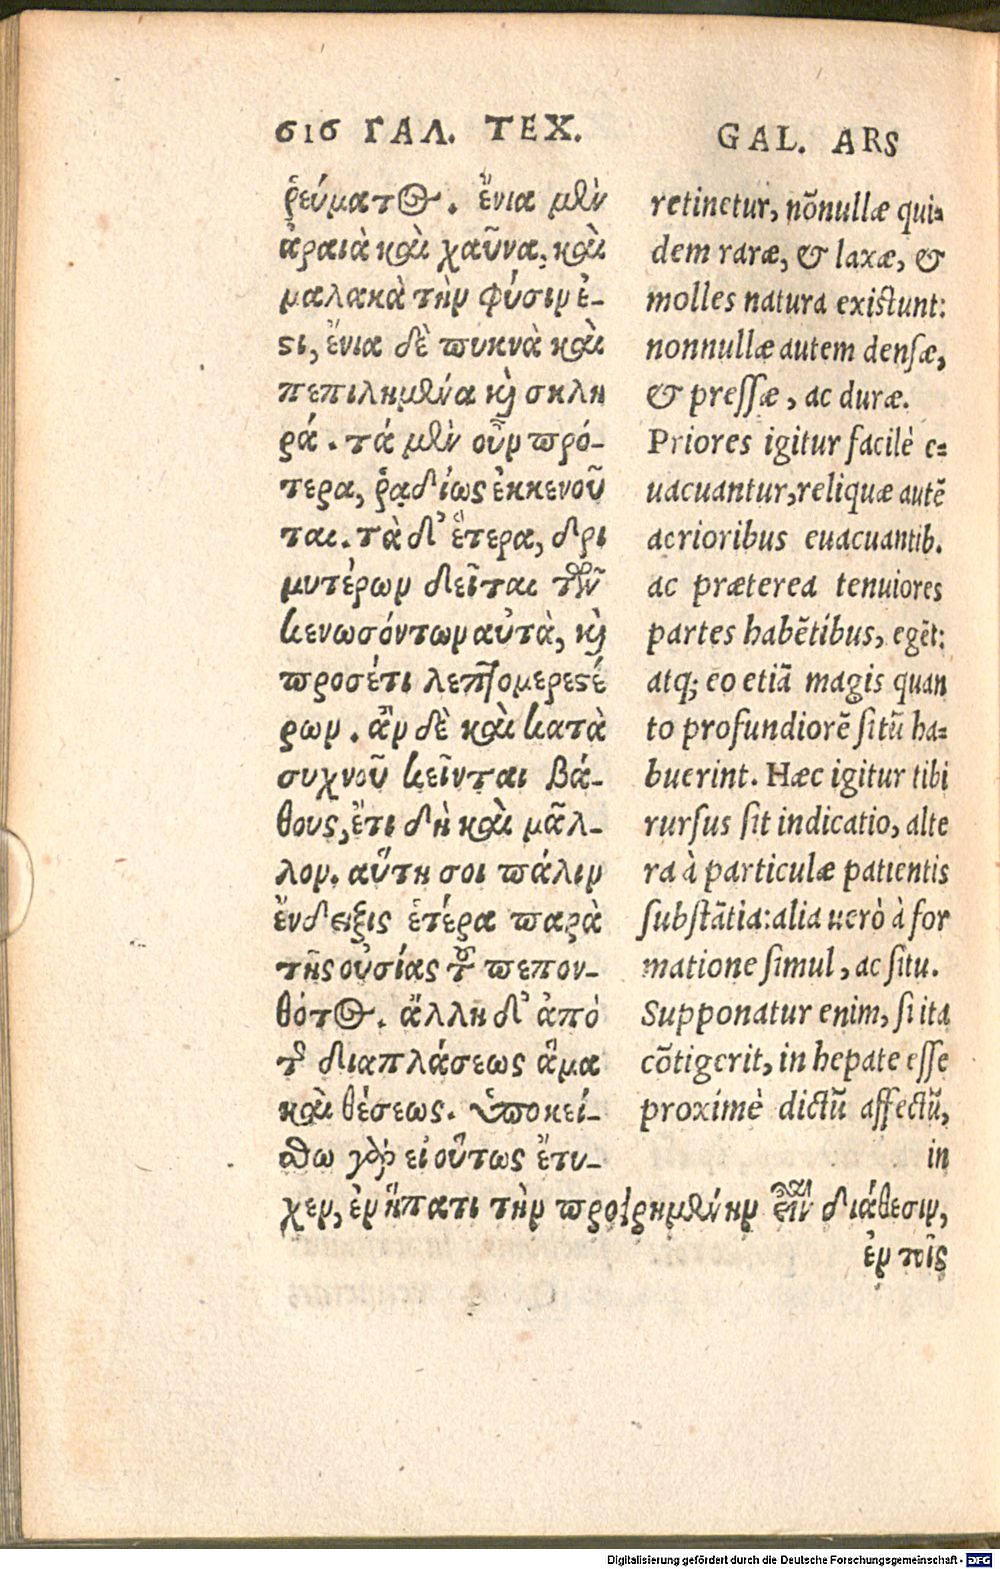 σισ ΓΑΛ. ΤΕΧ.
ῥεύματος. ἔνια μὲν
ἀραιὰ καὶ χαῦνα, καὶ
μαλακὰ τὴν φύσιν ἐ-
ϛι, ἔνια δὲ πυκνὰ καὶ
πεπιλημένα κὶ σκλη
ρά. τά μὲν οὖν πρό-
τερα, ῥᾳδίως ἐκκενοῦ
ται. τὰ δ' ἕτερα, δρι
μυτέρων δεῖται τῶν
κενωσόντων αὐτὰ, κὶ
προσέτι λεπτομερεϛέ
ρων. ἂν δὲ καὶ κατὰ
συχνοῦ κεῖνται βά-
θους, ἔτι δὴ καὶ μᾶλ-
λον. αὕτη σοι πάλιν
ἔνδειξις ἑτέρα παρὰ
τῆς οὐσίας τοῦ πεπον-
θότος. ἄλλη δ' ἀπό
τῆς διαπλάσεως ἅμα
καὶ θέσεως. ὑποκεί-
σθω γὰρ εἰ οὕτως ἔτυ-
χεν, ἐν ἥπατι τὴν προειρημένην εἶναι διάθεσιν,
ἐν τοῖς
GAL. ARS
retinetur, nõnullæ qui-
dem raræ, & laxæ, &
molles natura existunt:
nonnullæ autem densæ,
& pressæ, ac duræ.
Priores igitur facilè e-
uacuantur, reliquæ autẽ
acrioribus euacuantib.
ac præterea tenuiores
partes habẽtibus, egẽt:
atq; eo etiã magis quan
to profundiorẽ sitũ ha-
buerint. Hæc igitur tibi
rursus sit indicatio, alte
ra à particulæ patientis
substãtia: alia uerò à for
matione simul, ac situ.
Supponatur enim, si ita
cõtigerit, in hepate esse
proximè dictũ affectũ,
in
Digitalisierung gefördert durch die Deutsche Forschungsgemeinschaft - DFG